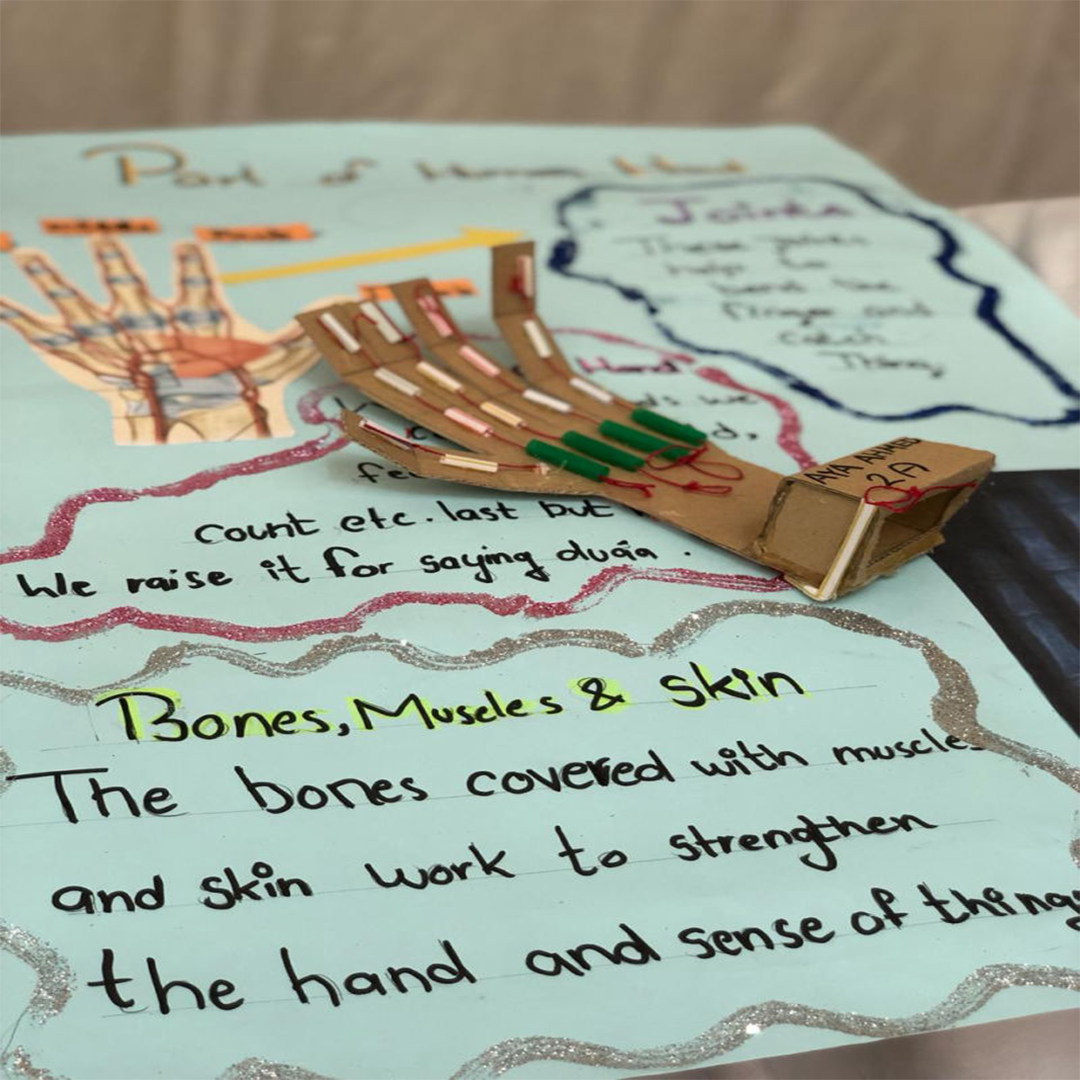 Part of Human Hand
Joints
These joints
help to
bend the
finger and
catch
Thing,
Hand
we
count etc. last but
We raise it for saying duáa .
AYA AHMED
2A
Bones, Muscles & skin
The bones covered with muscles
and skin work to strengthen
the hand and sense of things